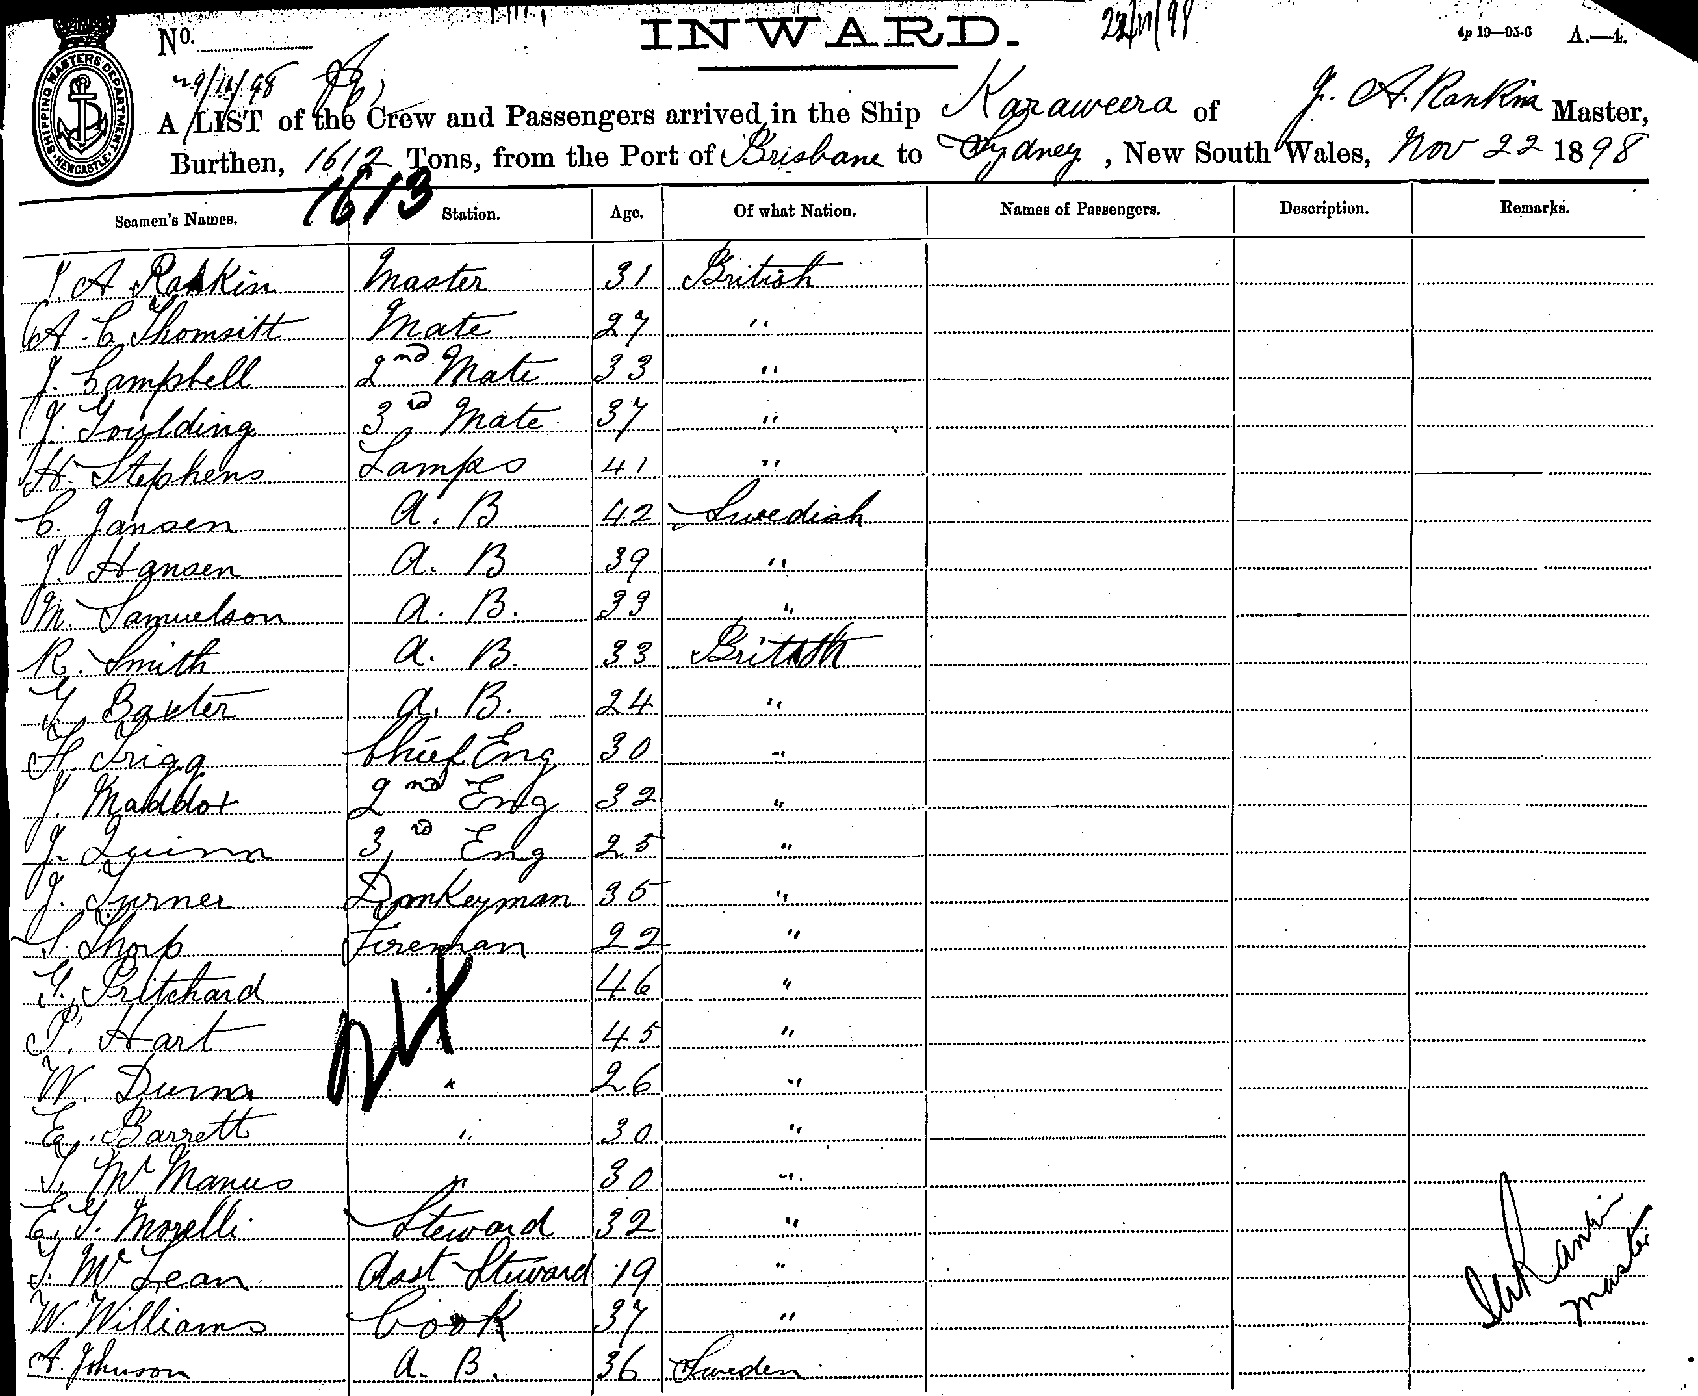 No. INWARD. 22/11/98 4p 19—03-6 A.—4.
SHIPPING MASTERS DEPARTMENT NEWCASTLE
A LIST of the Crew and Passengers arrived in the Ship Karaweera of J. A. Rankin Master,
Burthen, 1612 Tons, from the Port of Brisbane to Sydney, New South Wales, Nov 22 1898
1613
Seamen's Names. Station. Age. Of what Nation. Names of Passengers. Description. Remarks.
J. A Rankin Master 31 British
A. C Thomsitt Mate 27 "
J. Campbell 2nd Mate 33 "
J. Goulding 3rd Mate 37 "
H. Stephens Lamps 41 "
C. Jansen A. B 42 Swedish
J. Hansen A. B 39 "
M. Samuelson A. B. 33 "
R. Smith A. B. 33 British
G. Baxter A. B. 24 "
H. Trigg Chief Eng 30 "
J. Maddox 2nd Eng 32 "
J. Quinn 3rd Eng 25 "
J. Turner Donkeyman 35 "
S. Thorp Fireman 22 "
G. Pritchard " 46 "
P. Hart 45 "
W. Dunn " 26 "
E. Barrett " 30 "
T. McManus " 30 "
E. G. Morelli Steward 32 "
J. McLean Asst Steward 19 "
W. Williams Cook 37 "
A. Johnson A. B. 36 Sweden
24
JA Rankin
Master